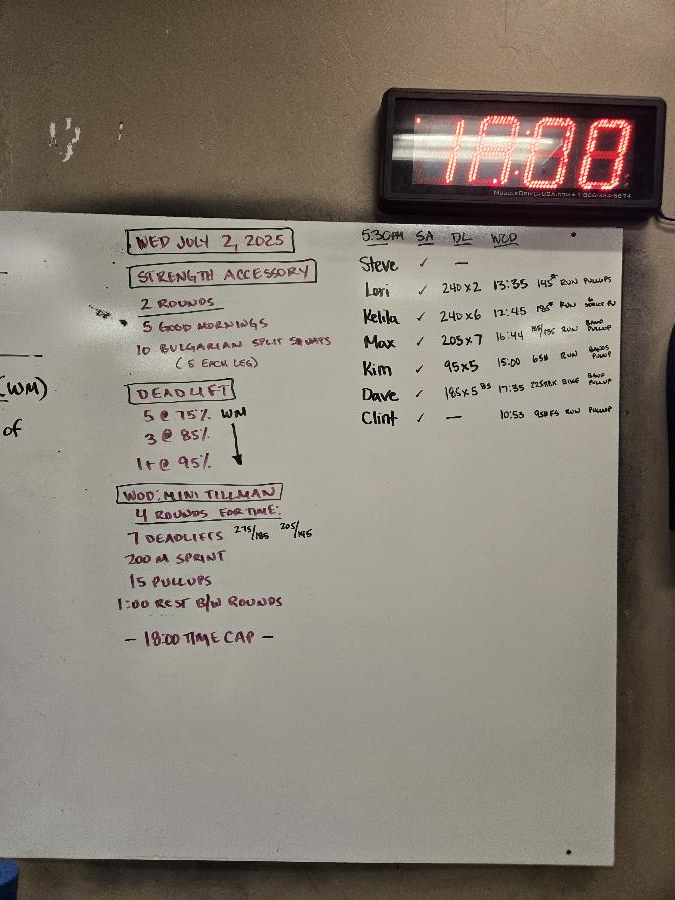 18:08
MUSCLEDRIVERUSA.COM • 1-866-
WED JULY 2, 2025
STRENGTH ACCESSORY
2 ROUNDS
5 GOOD MORNINGS
10 BULGARIAN SPLIT SQUATS
(5 EACH LEG)
DEADLIFT
5 @ 75% WM
3 @ 85%
1+ @ 95%
WOD: MINI TILLMAN
4 ROUNDS FOR TIME:
7 DEADLIFTS 275/185 205/145
200 M SPRINT
15 PULLUPS
1:00 REST B/W ROUNDS
- 18:00 TIME CAP -
5:30PM SA DL WOD
Steve ✓ —
Lori ✓ 240x2 13:35 145# RUN PULLUPS
Kelila ✓ 240x6 12:45 185# RUN
Max ✓ 205x7 16:44 RUN BAND PULLUP
Kim ✓ 95x5 15:00 65# RUN BANDS PULLUP
Dave ✓ 185x5 BS 17:35 BIKE BAND PULLUP
Clint ✓ — 10:53 95# FS RUN PULLUP
(WM)
of